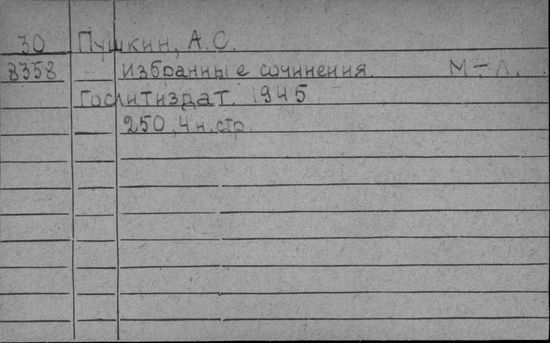 30 Пушкин, А.С.
8358 Избранные сочинения. М-Л.
Гослитиздат. 1945
250, 4 н. стр.